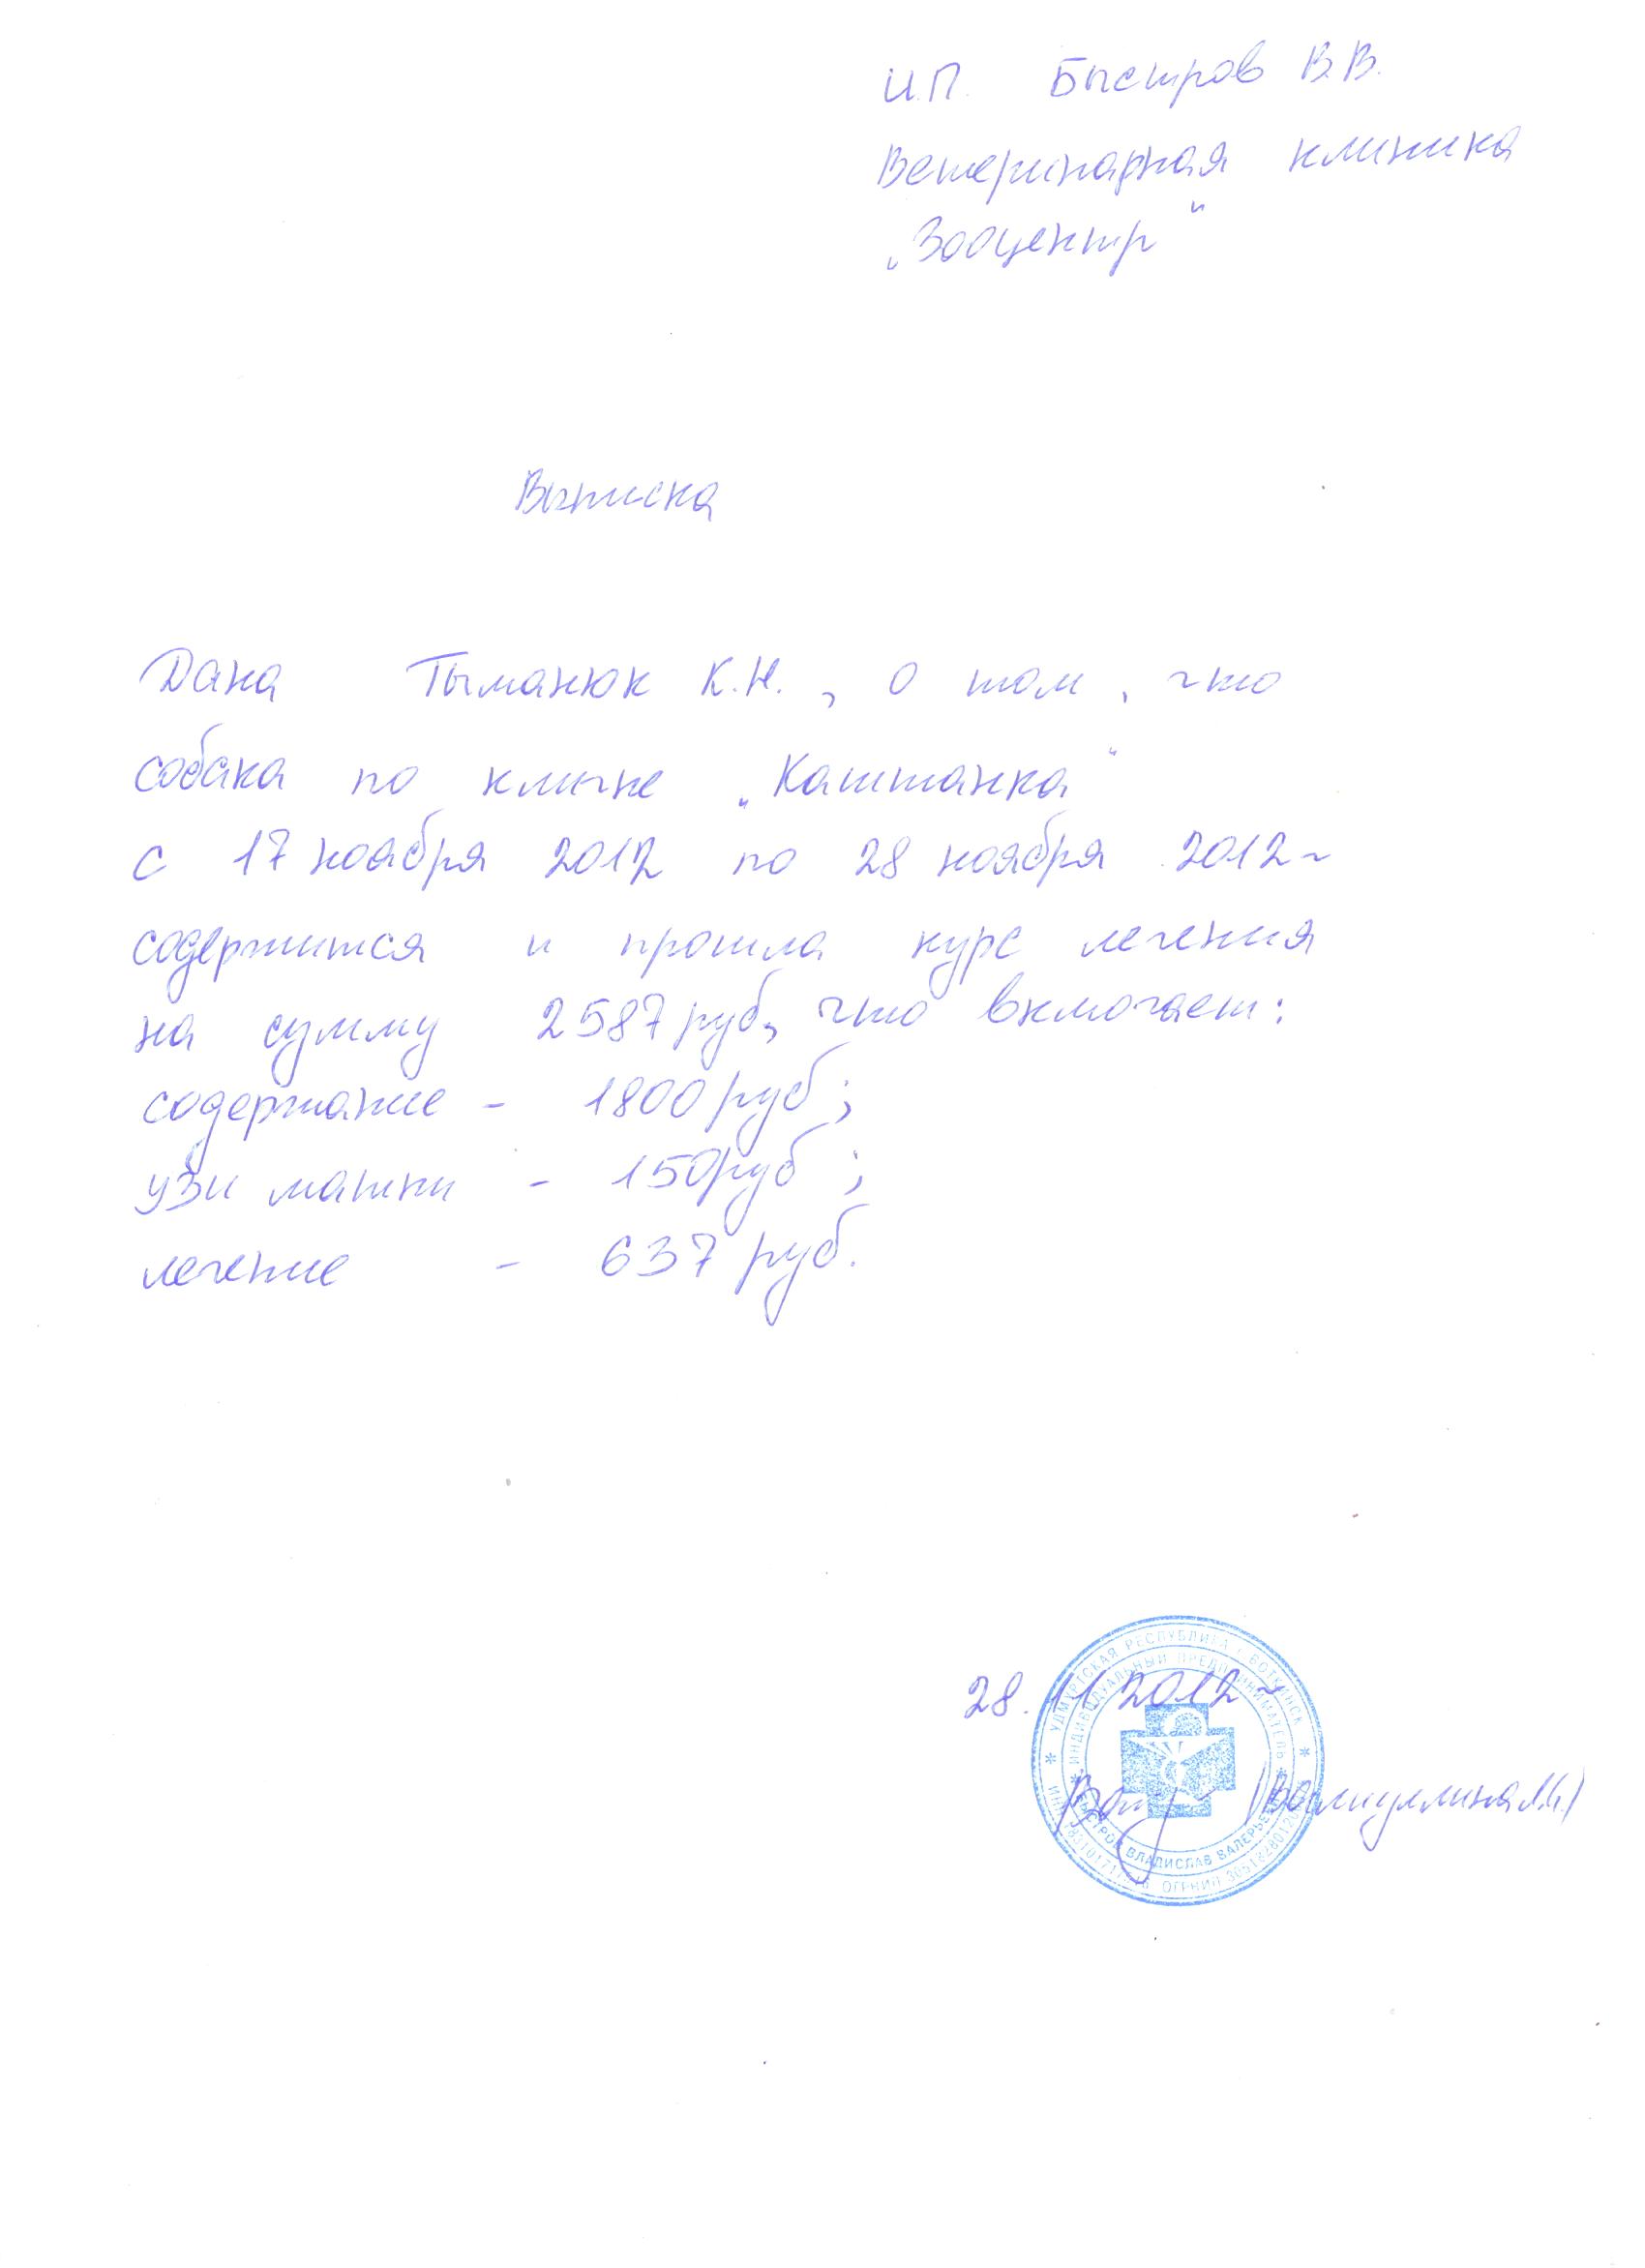 И.П. Быстров В.В.
Ветеринарная клиника
„Зооцентр"
Выписка
Дана Тыманюк К.Н., о том, что
собака по кличке „Каштанка"
с 17 ноября 2012 по 28 ноября 2012г
содержится и прошла курс лечения
на сумму 2587 руб, что включает:
содержание - 1800 руб;
узи матки - 150 руб;
лечение - 637 руб.
28.11.2012г
УДМУРТСКАЯ РЕСПУБЛИКА Г. ВОТКИНСК
ИНДИВИДУАЛЬНЫЙ ПРЕДПРИНИМАТЕЛЬ
БЫСТРОВ ВЛАДИСЛАВ ВАЛЕРЬЕВИЧ
ИНН ОГРНИП